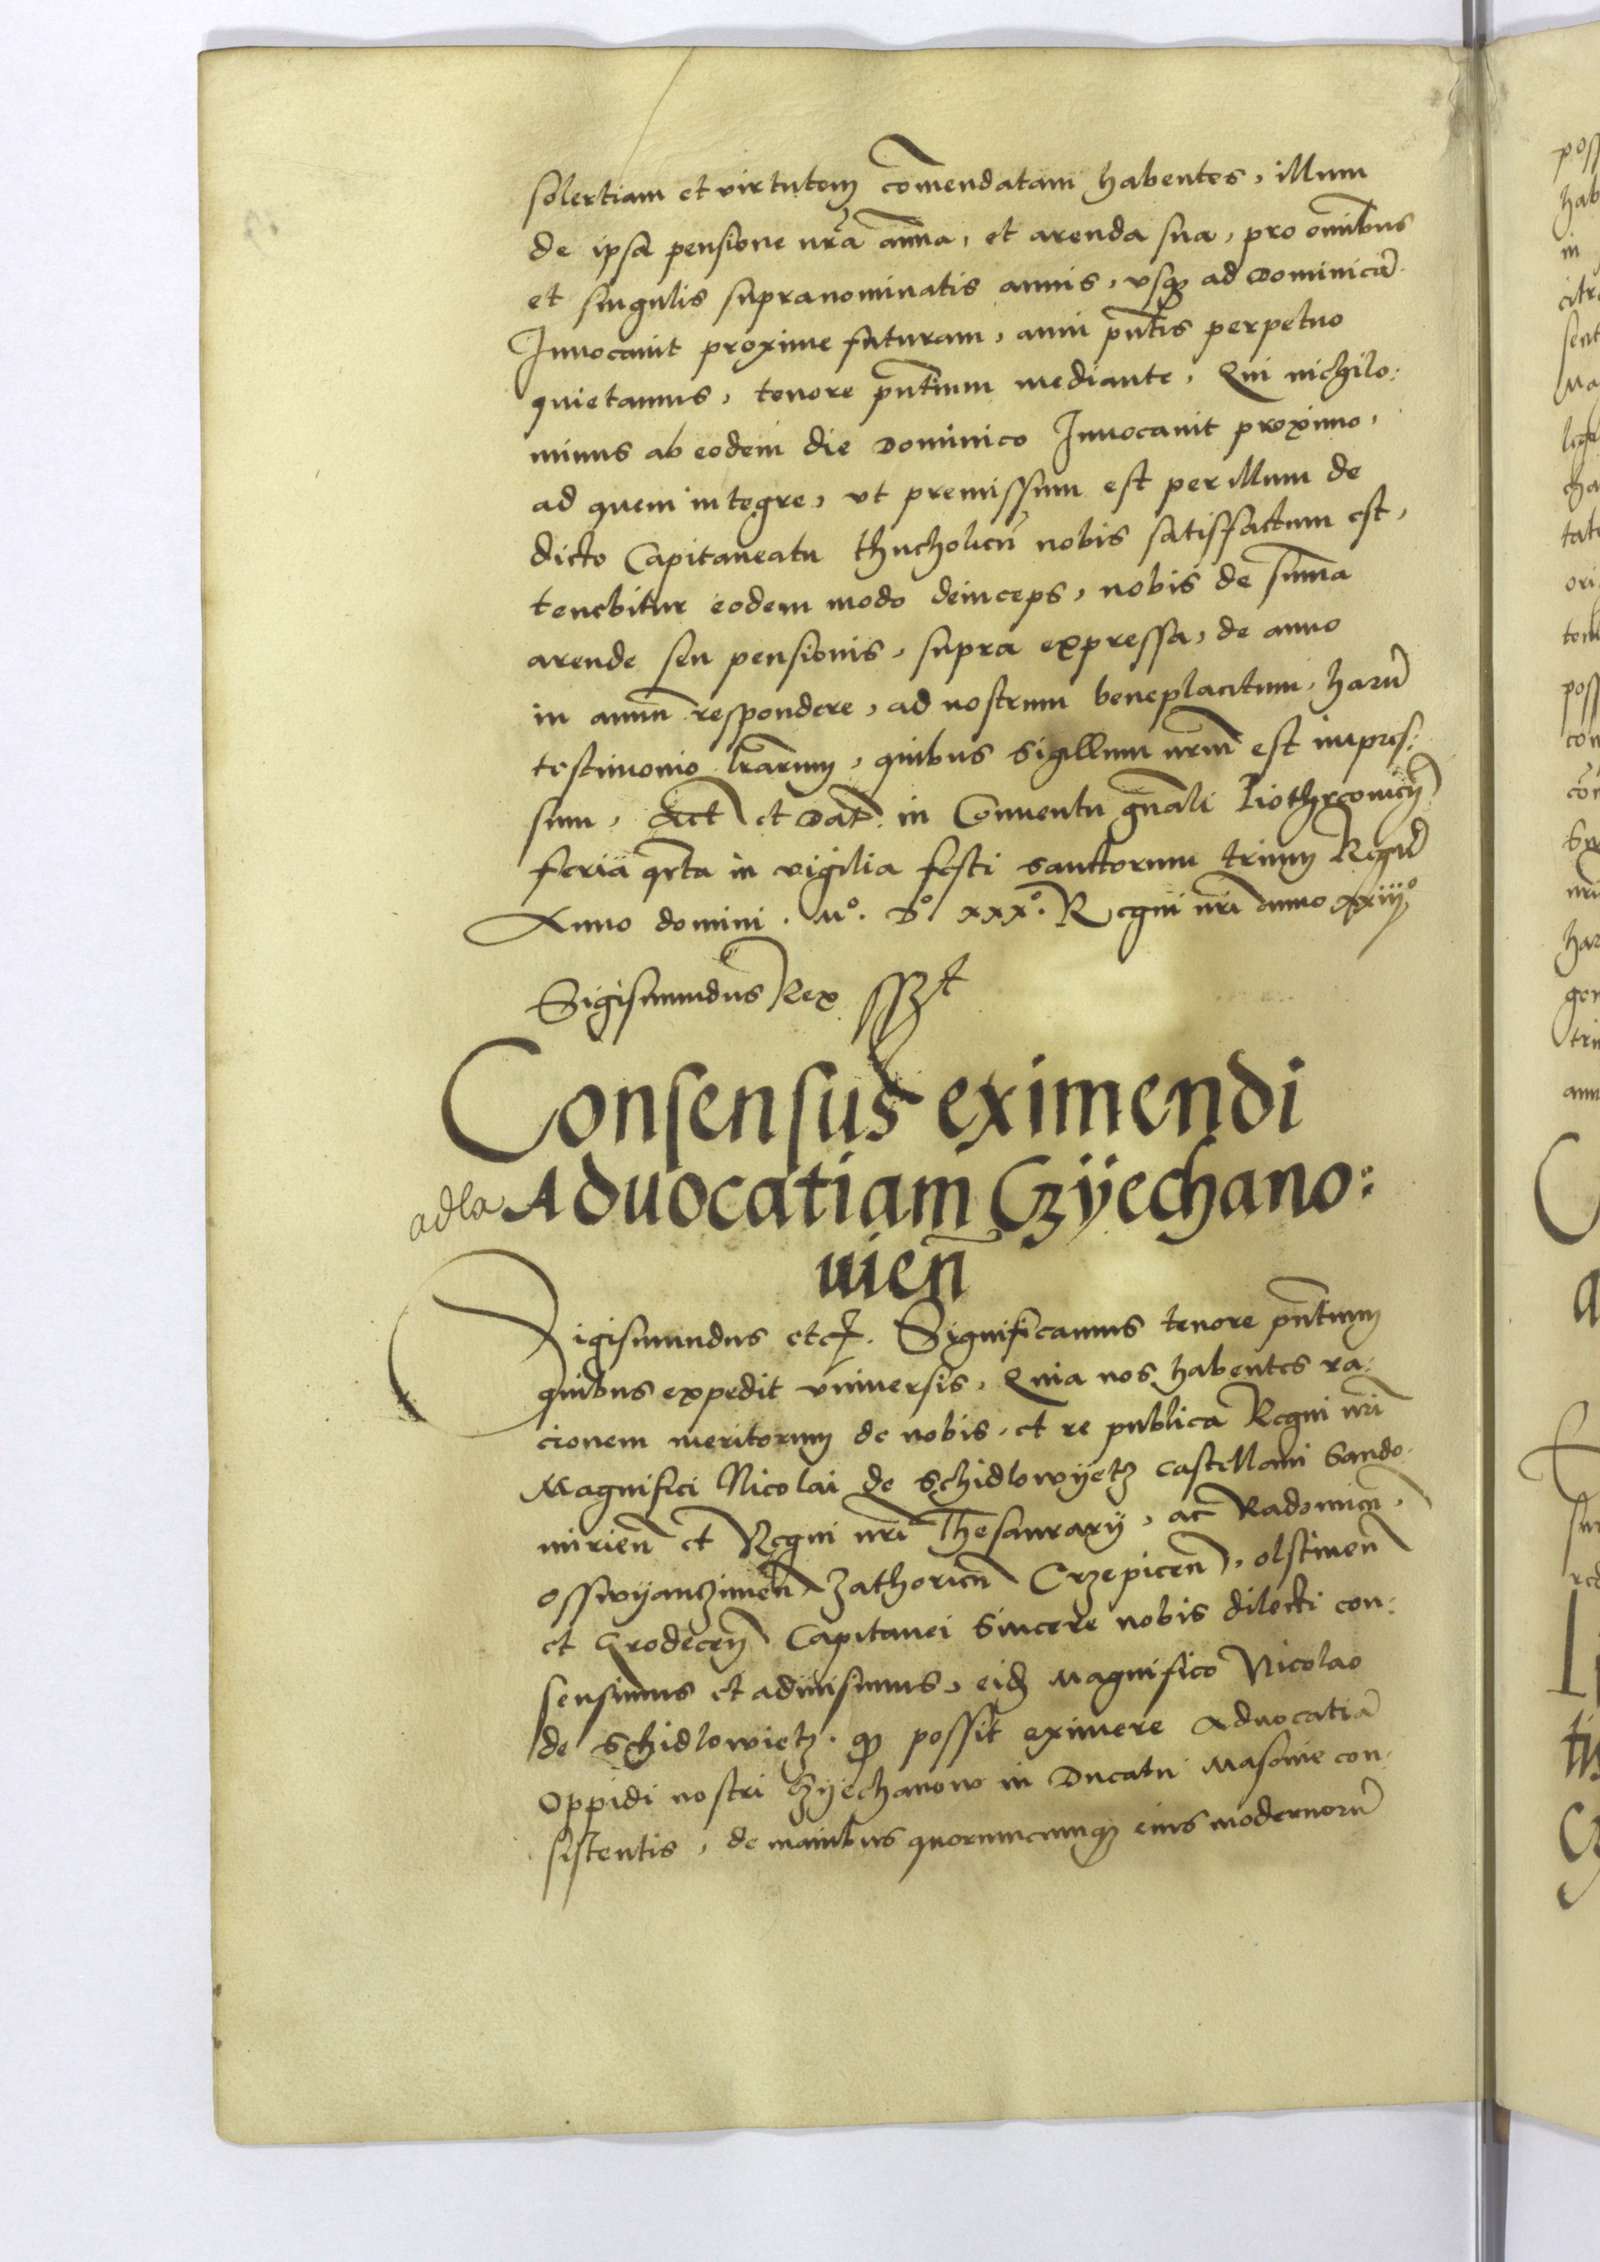 solertiam et virtutem com̄endatam habentes, illum
de ipsa pensione nr̄a annua, et arenda sua, pro omnibus
et singulis supranominatis annis, vsqꝫ ad Dominicā
Inuocauit proxime futuram, anni pn̄tis perpetuo
quietamus, tenore pn̄tium mediante, Qui nichilo:
minus ab eodem die Dominico Inuocauit proximo,
ad quem integre, vt premissum est per illum de
dicto Capitaneatu thucholien̄ nobis satisfactum est,
tenebitur eodem modo deinceps, nobis de sum̄a
arende seu pensionis, supra expressa, de anno
in annū respondere, ad nostrum beneplacitum, harū
testimonio lr̄arum, quibus Sigillum nrm̄ est impres:
sum, Act̄ et Dat̄ in Conuentu gn̄ali Piothrcouien̄
feria qrta in vigilia festi sanctorum trium Regū
Anno domini . M°. D° xxx°. Regni nr̄i anno xxiiij°
Sigismundus Rex sszt
Consensus eximendi
adla Aduocatiam Czÿechano:
uien̄
Sigismundus etc. Significamus tenore pn̄tium
quibus expedit vniuersis, Quia nos habentes ra:
cionem meritorum de nobis, et re publica Regni nr̄i
Magnifici Nicolai de Schidlowÿetz castellani Sando:
mirien̄ et Regni nr̄i Thesaurarÿ, ac Radomien̄,
osswÿanczimen̄ Zathorien̄ Crzepicen̄, olstinen̄
et Grodecen̄ Capitanei Sincere nobis dilecti con:
sensimus et admisimus, eidꝫ Magnifico Nicolao
de Schidlowietz. qꝫ possit eximere Aduocatiā
Oppidi nostri Czÿechanow in Ducatu Masouie con:
sistentis, de manibus quorumcumqꝫ eius modernorū